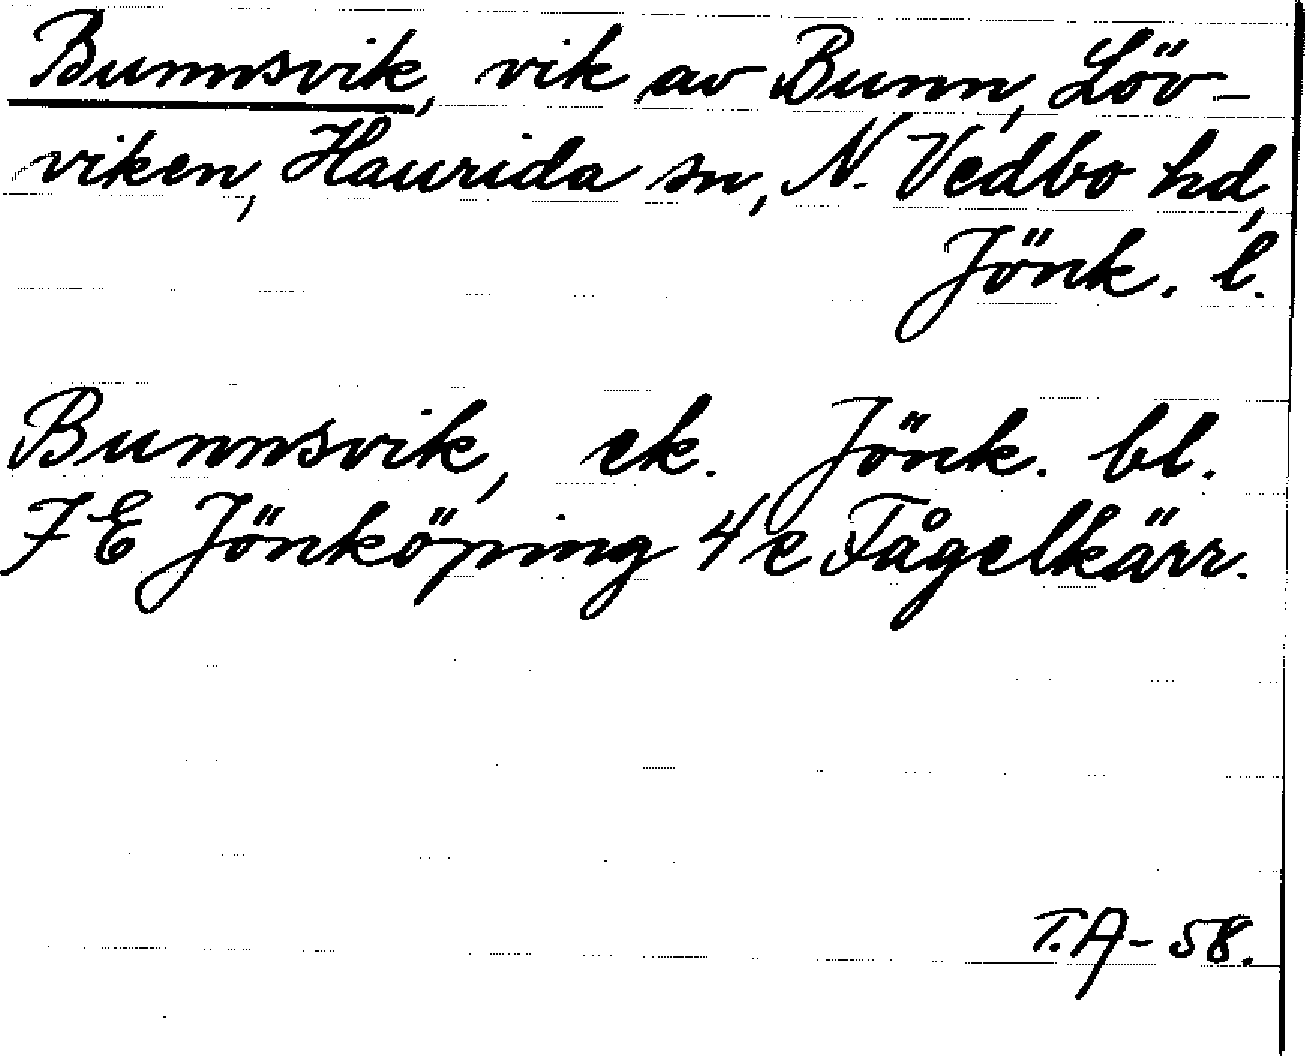 Bunnsvik, vik av Bunn, Löv-
viken, Haurida sn, N. Vedbo hd,
Jönk. l.
Bunnsvik, ek. Jönk. bl.
7 E Jönköping 4 e Fågelkärr.
T.A - 58.